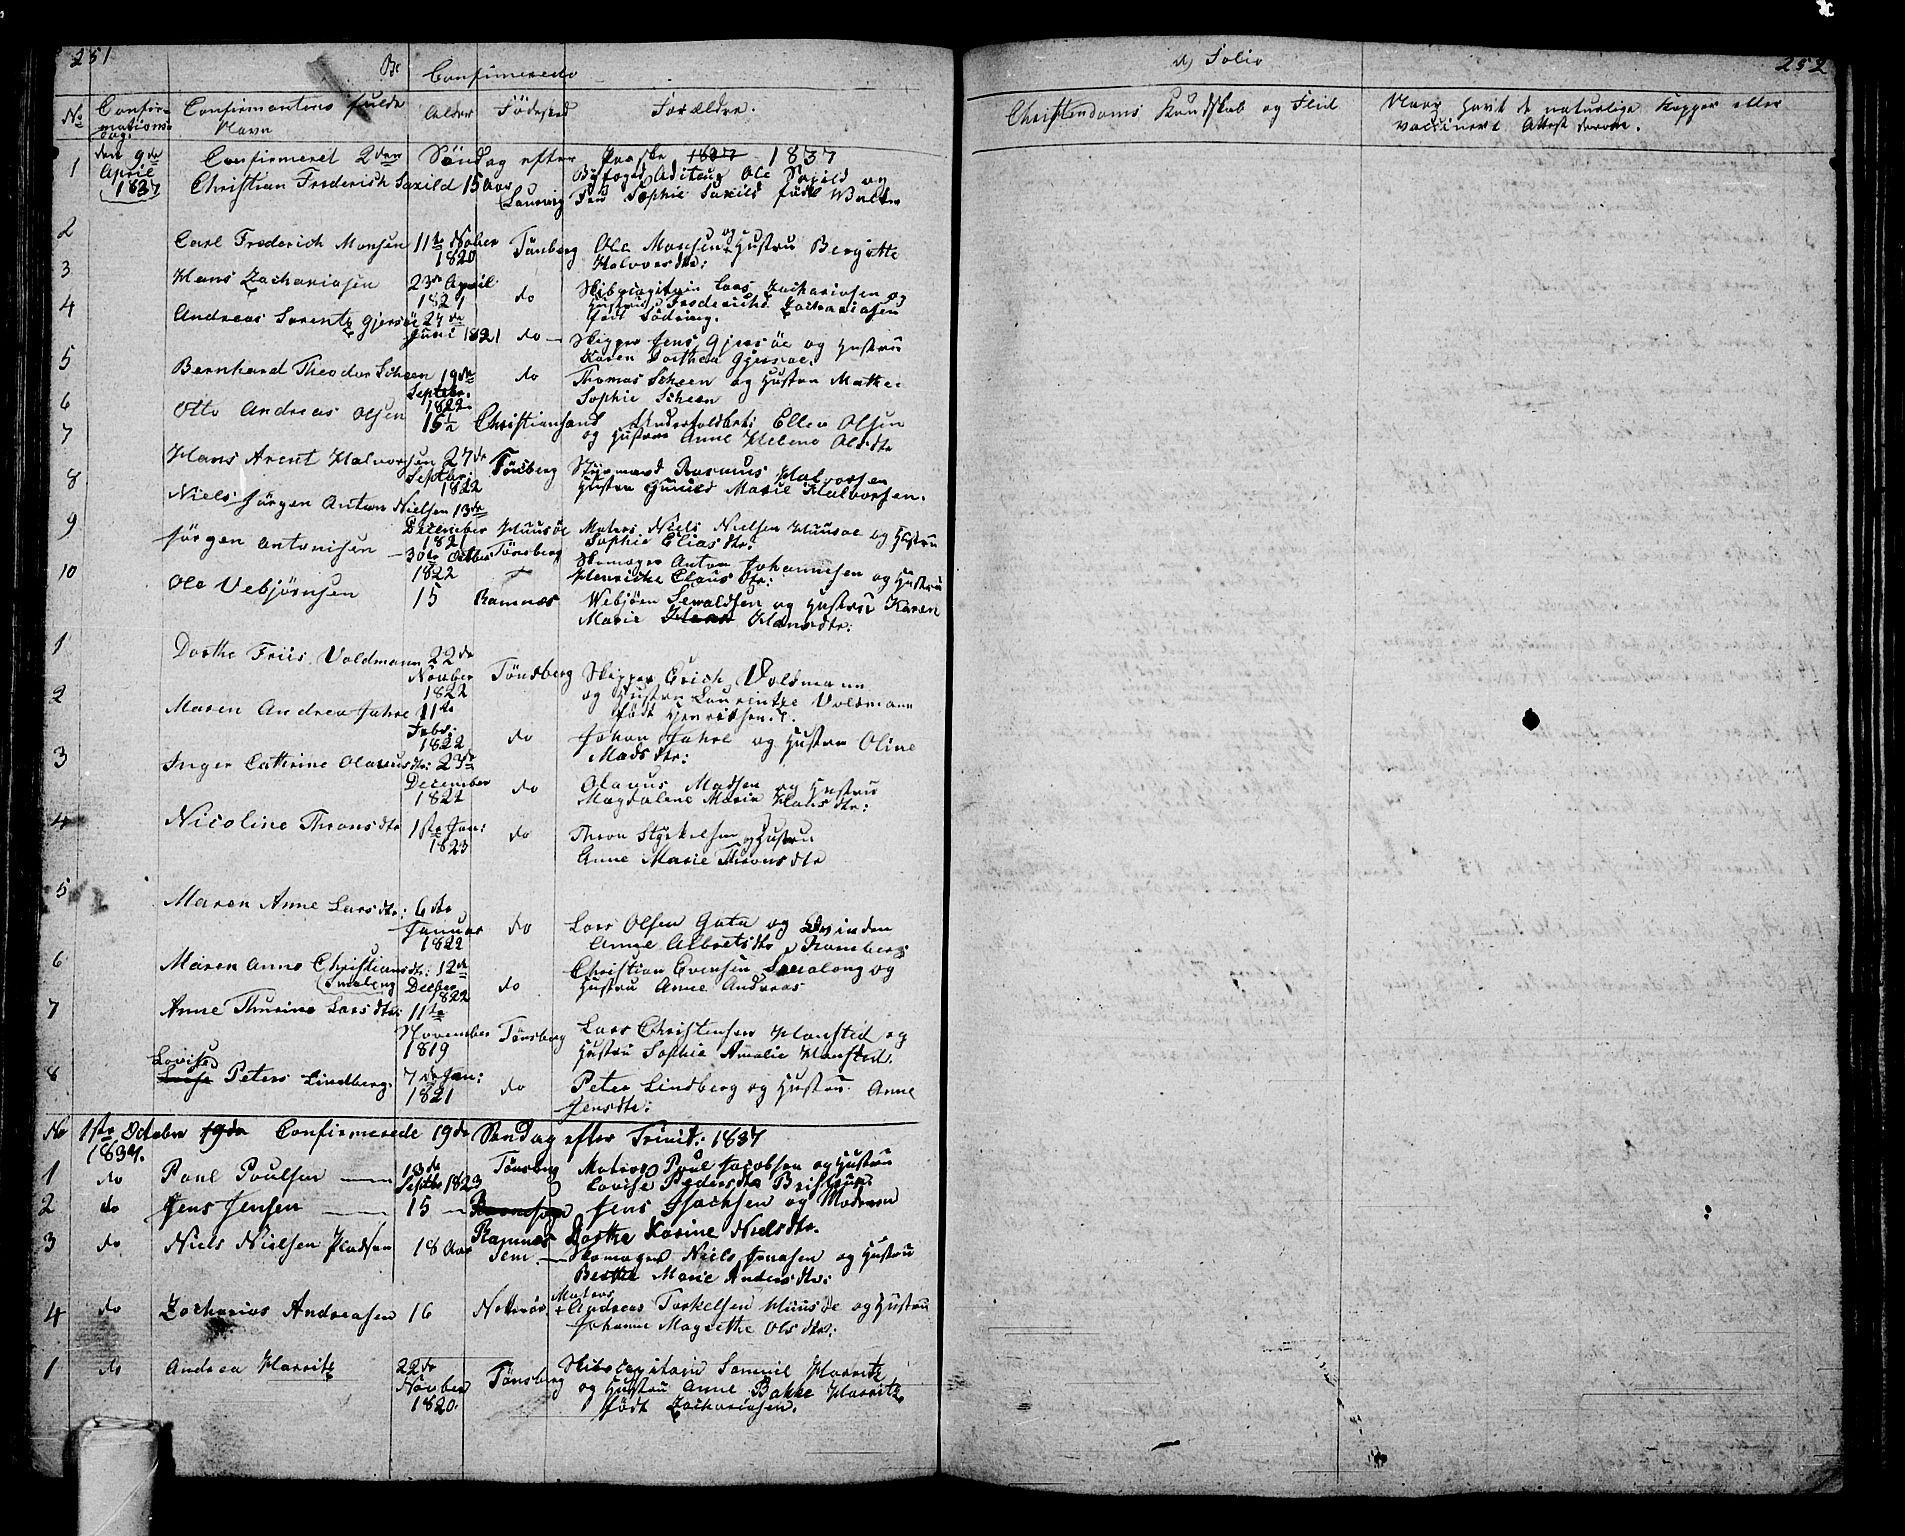 251
Confirmerede
No Confirmations dag. Confirmantens fulde Navn Alder Födested Forældre.
den 9de April 1837 Confirmeret 2den Söndag efter Paaske 1837 1837
1 Christian Frederich Saxild 15 Aar Laurvig Byfoged Ole Saxild og
Sophie Saxild födt
2 Carl Frederich Monsen 11te Nober 1820 Tönsberg Ole Monsen og Hustru Bergitte
Halvorsdtr:
3 Hans Zachariasen 23de April 1821 do Skibscapitain Lars Zachariasen og
Hustru Frederiche Zachariasen
födt Södring.
4 Andreas Lorentz Gjersöe 24de Juni 1821 do Skipper Jens Gjersöe og Hustru
Karen Dorthea Gjersöe.
5 Bernhard Theodor Scheen 19de Septebr. 1822 do Thomas Scheen og Hustru Mathe
Sophie Scheen
6 Otto Andreas Olsen 15½ Christiansand Ellev Olsen
og Hustru Anne Helene Olsdtr
7 Hans Arent Halvorsen 27de Septbr: 1822 Tönsberg Styrmand Rasmus Halvorsen
Hustru Gunild Marie Halvorsen.
8 Niels Jörgen Anton Nielsen 13de December 1821 Huusöe Matros Niels Nielsen Huusöe og Hustru
Sophie Eliasdtr:
9 Jörgen Antonisen 30te Octbr 1822 Tönsberg Skomager Anton Johannesen og Hustru
Henriche Clausdtr:
10 Ole Vebjörnsen 15 Ramnæs Webjörn Sewaldsen og Hustru Karen
Marie Hans Hansdtr:
1 Dorthe Friis Voldmann 22de Novber 1822 Tönsberg Skipper Erich Voldmann
og Hustru Laurentze Voldmann
födt Henrichsen.
2 Maren Andrea Jahre 11te Febr: 1822 do Johan Jahre og Hustru Oline
Madsdtr:
3 Inger Cathrine Olavusdtr: 23de December 1821 do Olavus Madsen og Hustru
Magdalene Maria Hansdtr:
4 Nicoline Thronsdtr 1ste Jan: 1823 do Thron Styrkelsen og Hustru
Anne Marie Thronsdtr
5 Maren Anne Larsdtr: 6te Januar 1822 do Lars Olsen Gata og Qvinden
Anne Albretsdtr Ramberg
6 Maren Anne Christiansdtr: Smaleng 12te Decber 1822 do Christian Evensen Smalong og
Hustru Anne Andreas
7 Anne Thurine Larsdtr: 11te November 1819 Tönsberg Lars Christensen Hansted og
Hustru Sophie Amalie Hansted.
8 Lovise Peters Lindberg. 7de Jan: 1821 do Peter Lindberg og Hustru Anne
Jensdtr:
No 1ste October 1837. 19de Confirmerede 19de Söndag efter Trinit: 1837
1 do Paul Poulsen 18de Septbr 1823 Tönsberg Matros Paul Jacobsen og Hustru
Lovise Pedersdtr
2 do Jens Jensen 15 Ramnæs Jens Isachsen og Moderen
Dorthe Karine Nielsdtr.
3 do Niels Nielsen 18 Aar Sem. Skomager Niels Jonasen og Hustru
Berthe Marie Andersdtr:
4 do Zacharias Andreasen 16 Nötterö. Matros Andreas Torkelsen Huusöe og Hustru
Johanne Magrethe Olsdtr:
1 do Andrea Harritz 22de Novber 1820. Tönsberg Skibscapitain Samuel Harritz
og Hustru Anne Bakke Harritz
födt Zachariasen.
d, Solio 252
Christendoms Kundskab og Flid
Naar havt de naturlige Kopper eller
vaccineret Attest derom.